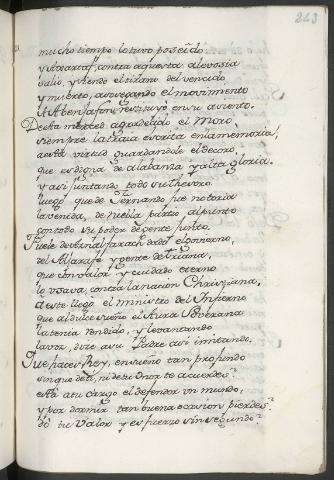 243
mucho tiempo lo tuvo poseido
y Axarafe, contra aquesta alevosia
salio, y siendo el tirano del vencido
y muerto, sosegando el movimiento
A Abenjafon restituyó en su asiento.
De esta merced agradecido el Moro
siempre la traia escrita en la memoria,
a esta virtud guardandole el decoro,
que es digna de alabanza y alta gloria.
y asi juntando todo su thesoro
luego que de Fernando fue notoria
la venida, de Niebla partio al punto
con todo su poder de gente junto.
Fuele de Aznalfarach dado el govierno,
del Alxarafe y gente de Triana,
que con valor, y cuidado eterno
lo usava, contra la nacion Christiana,
a este llegó el ministro del Infierno
que al dulce sueño el Aura Soverana
la tenia rendido, y levantando
la voz, dize a su Padre asi imitando.
Que haces Rey, en sueño tan profundo
sin que de ti, ni de tu Onor te acuerdes?
está a tu cargo el defender un mundo,
y por dormir tan buena ocasion pierdes?
do tu valor y esfuerzo sin segundo?